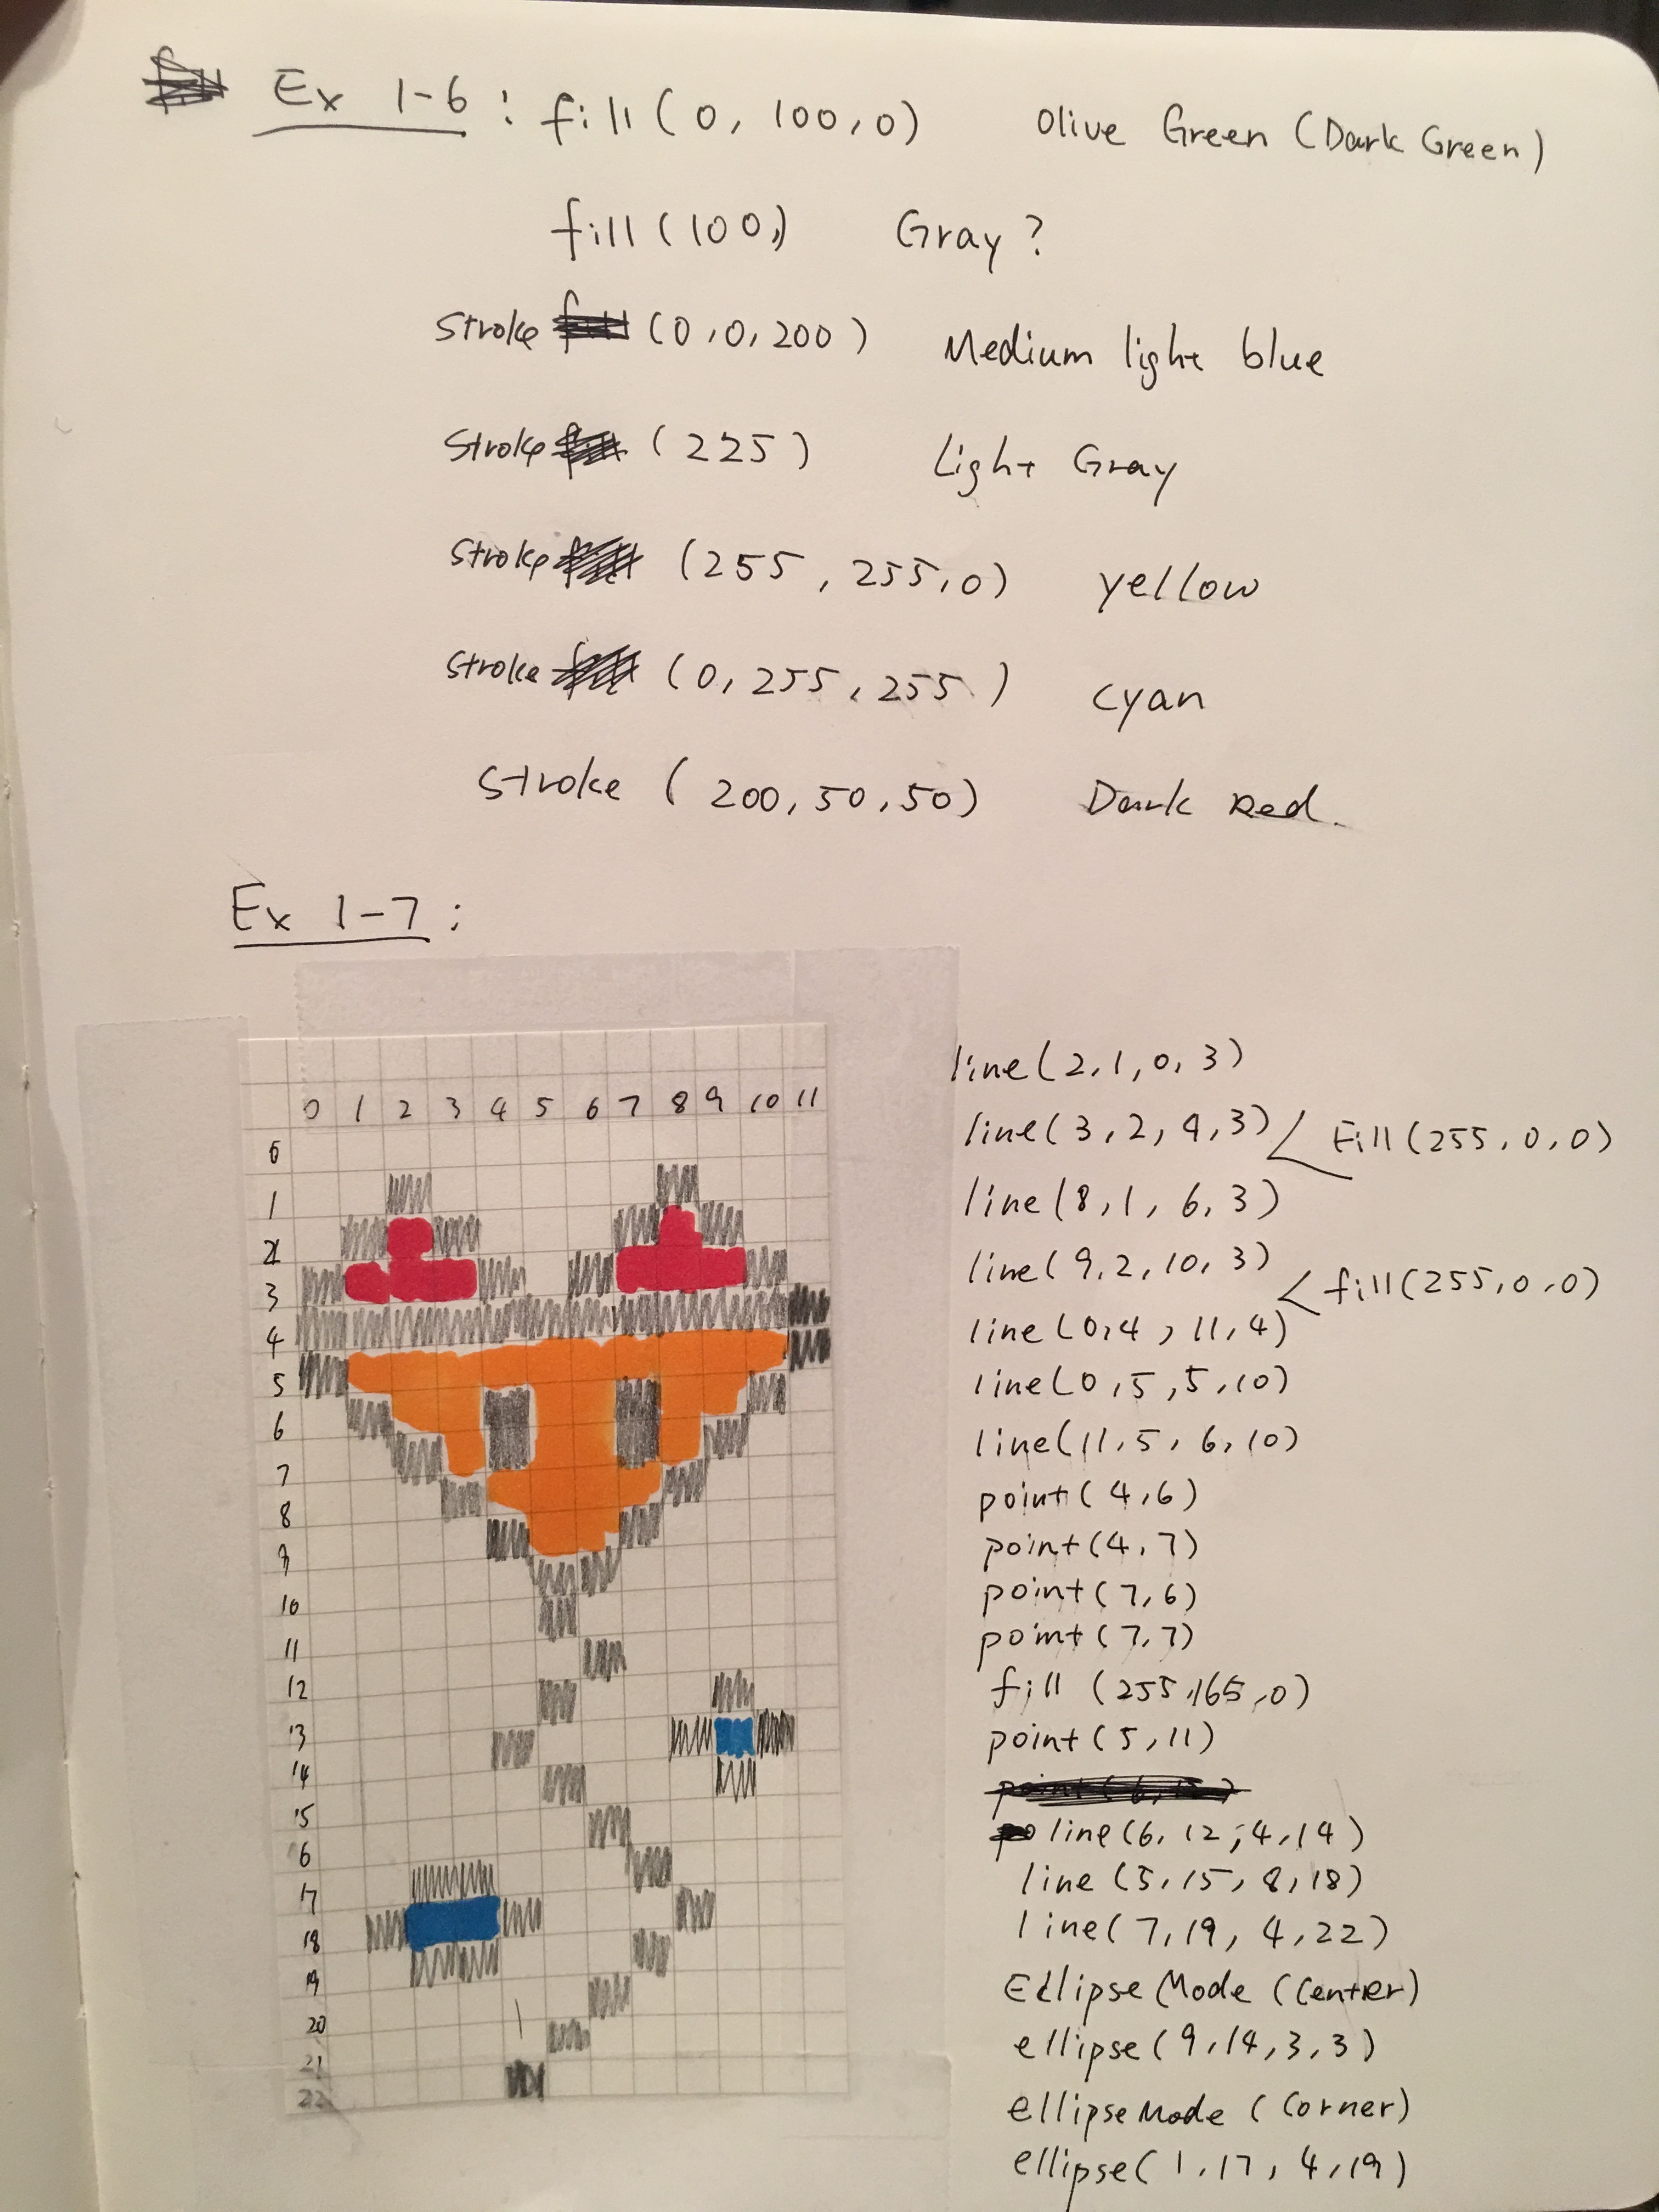 Ex 1-6 : fill(0, 100, 0) Olive Green (Dark Green)
fill(100) Gray?
Stroke (0, 0, 200) Medium light blue
Stroke (225) Light Gray
Stroke (255, 255, 0) yellow
Stroke (0, 255, 255) cyan
Stroke (200, 50, 50) Dark Red.
Ex 1-7 :
0 1 2 3 4 5 6 7 8 9 10 11
0
1
2
3
4
5
6
7
8
9
10
11
12
13
14
15
6
17
18
19
20
21
22
line(2, 1, 0, 3)
line(3, 2, 4, 3) < Fill(255, 0, 0)
line(8, 1, 6, 3)
line(9, 2, 10, 3)
< fill(255, 0, 0)
line(0, 4, 11, 4)
line(0, 5, 5, 10)
line(11, 5, 6, 10)
point(4, 6)
point(4, 7)
point(7, 6)
point(7, 7)
fill (255, 165, 0)
point(5, 11)
line(6, 12, 4, 14)
line(5, 15, 8, 18)
line(7, 19, 4, 22)
EllipseMode (Center)
ellipse(9, 14, 3, 3)
ellipseMode (Corner)
ellipse(1, 17, 4, 19)